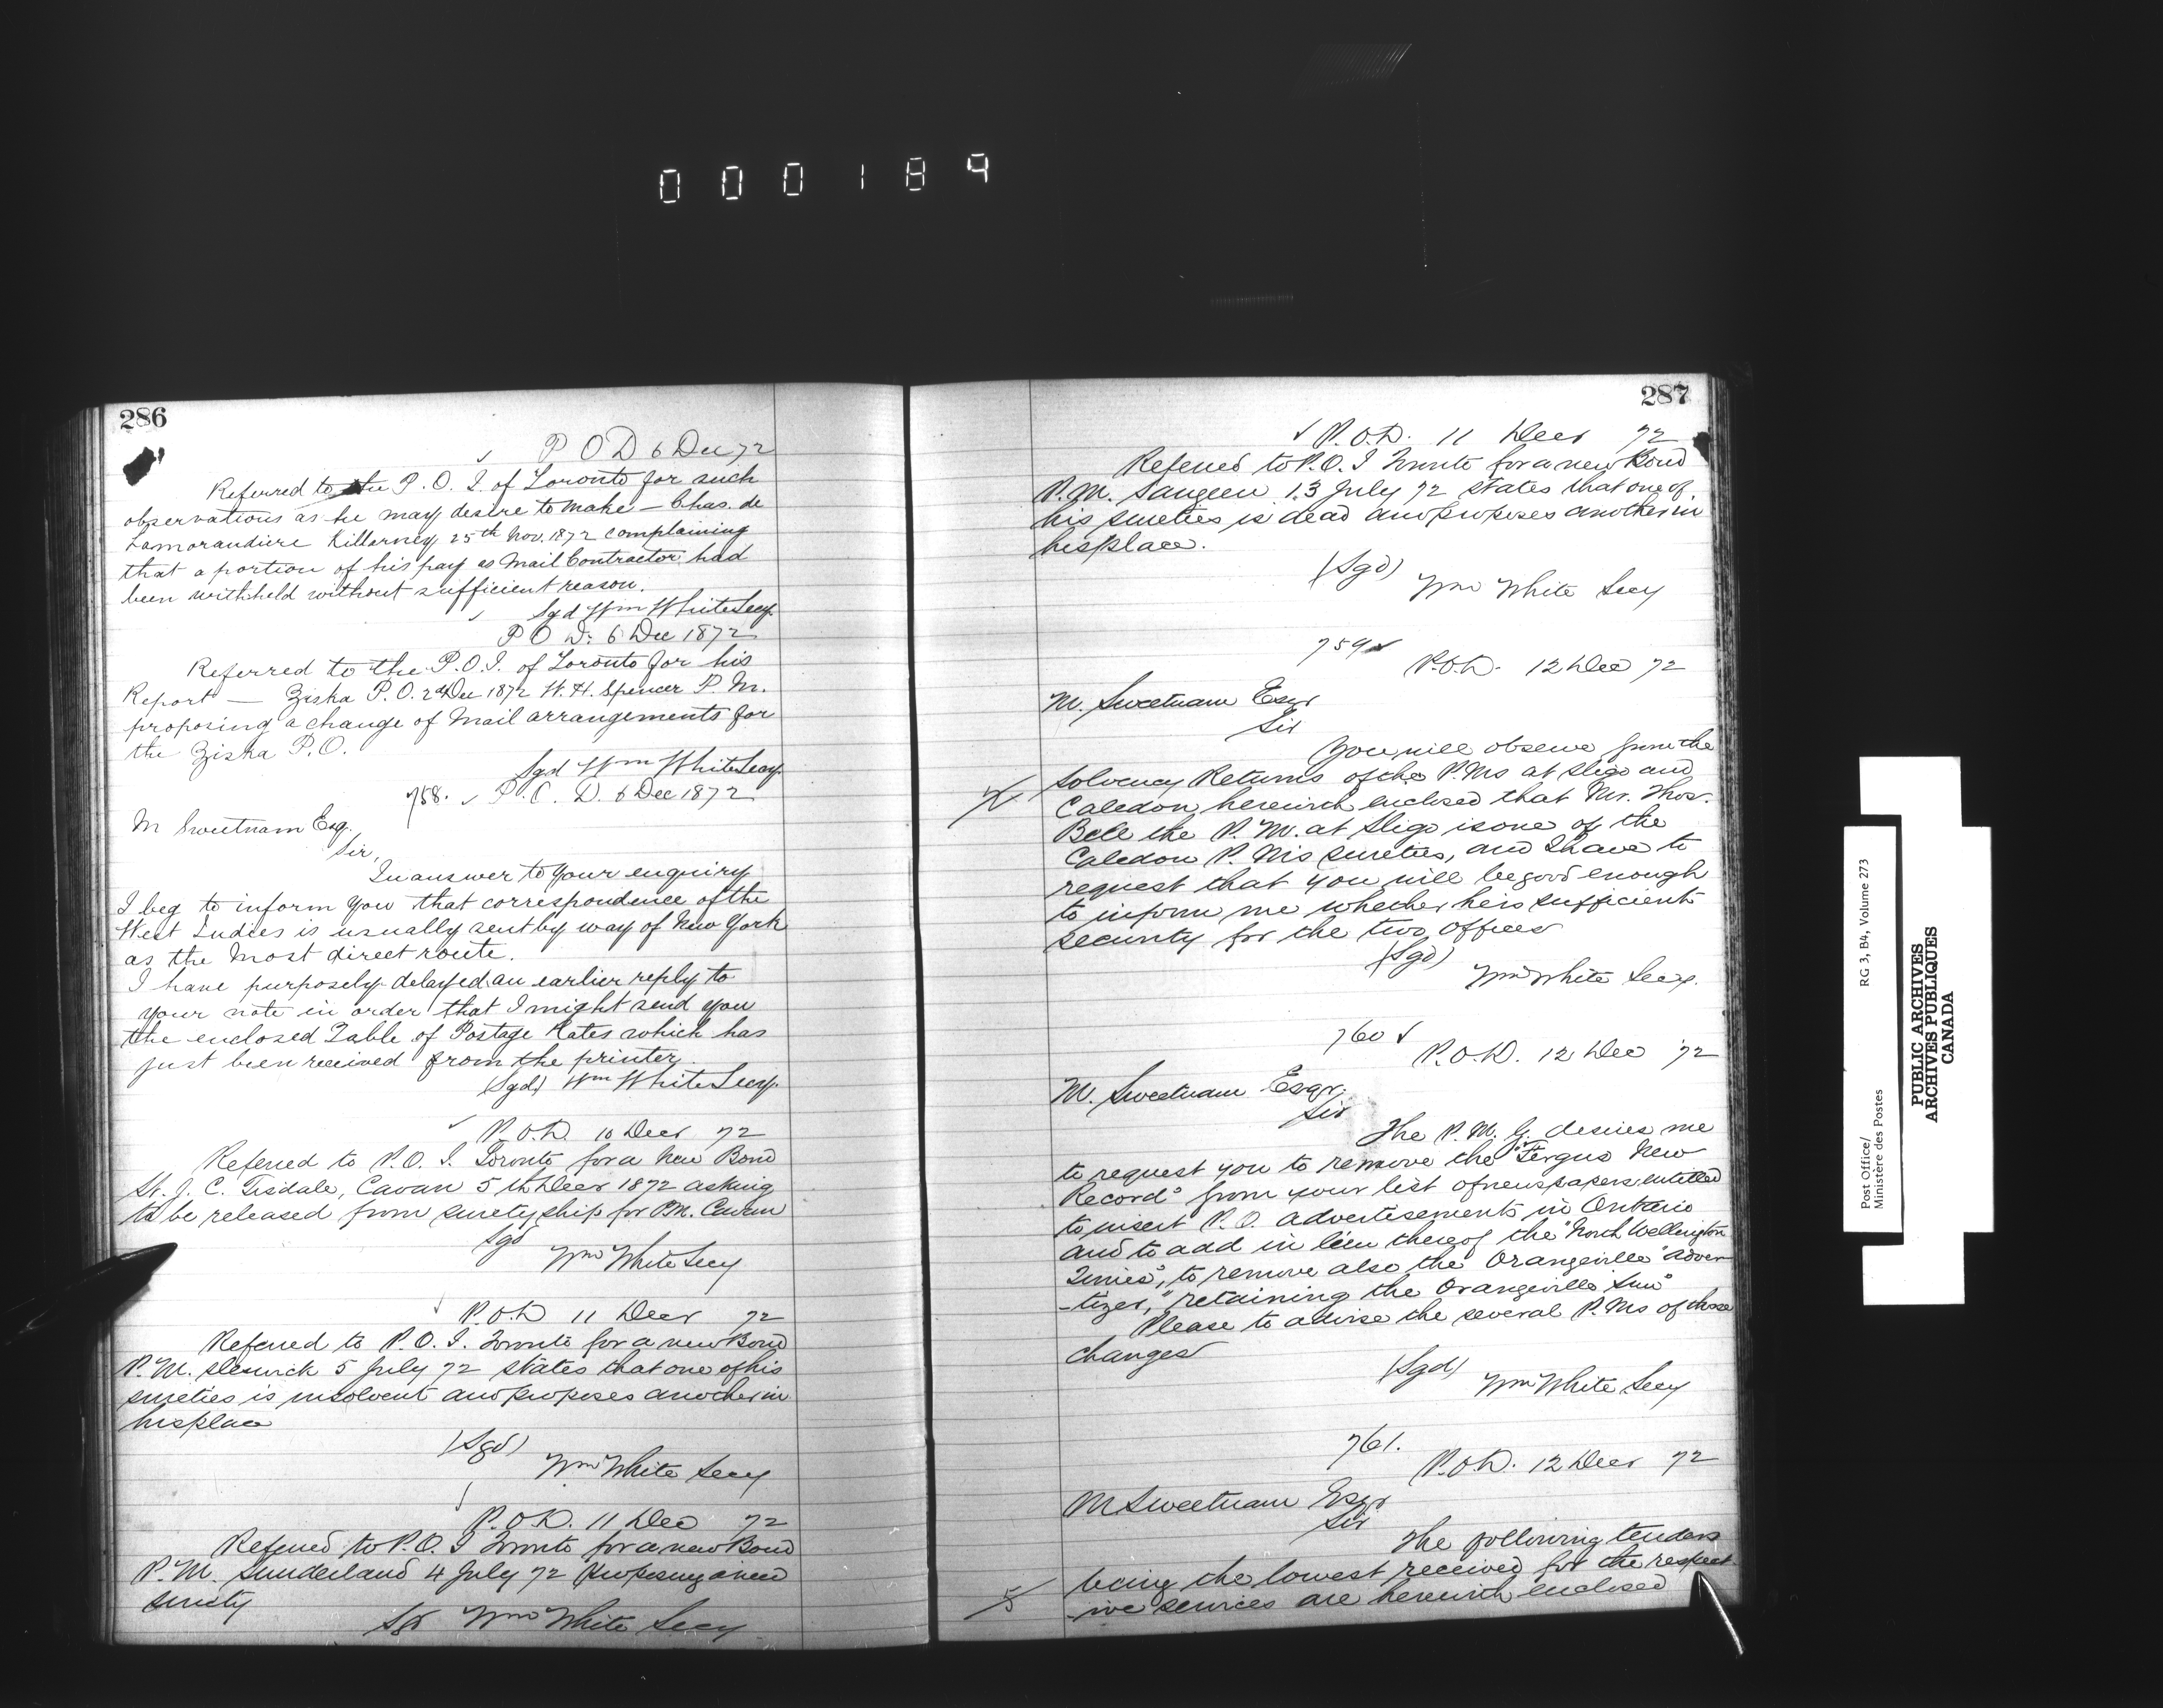 000189
286
P O D 6 Dec 72
Referred to the P. O. I. of Toronto for such
observations as he may desire to make — Chas. de
Lamorandiere Killarney 25th Nov. 1872 complaining
that a portion of his pay as Mail Contractor had
been withheld without sufficient reason.
Sgd Wm White Secy.
P O D. 6 Dec 1872
Referred to the P.O.I. of Toronto for his
Report — Ziska P.O. 2d Dec 1872 W. H. Spencer P. M.
proposing a change of Mail arrangements for
the Ziska P.O.
Sgd Wm White Secy.
758. P. O. D. 6 Dec 1872
M Sweetnam Esq.
Sir,
In answer to your enquiry
I beg to inform you that correspondence of the
West Indies is usually sent by way of New York
as the most direct route.
I have purposely delayed an earlier reply to
your note in order that I might send you
the enclosed Table of Postage Rates which has
just been received from the printer.
(Sgd) Wm White Secy.
P.O.D. 10 Decr 72
Referred to P.O.I. Toronto for a New Bond
J. C. Tisdale, Cavan 5th Decr 1872 asking
to be released from suretyship for P.M. Cavan
Sgd
Wm White Secy
P.O.D 11 Decr 72
Referred to P.O.I. Toronto for a new Bond
P.M. Sleswick 5 July 72 states that one of his
sureties is insolvent and proposes another in
his place
(Sgd)
Wm White Secy
P.O.D. 11 Dec 72
Referred to P.O.I Toronto for a new Bond
P.M. Sunderland 4 July 72 proposing a new
surety
Sgd Wm White Secy
287
P.O.D. 11 Decr 72
Referred to P.O.I Toronto for a new Bond
P.M. Saugeen 13 July 72 states that one of
his sureties is dead and proposes another in
his place.
(Sgd)
Wm White Secy
759
P.O.D. 12 Dec 72
M. Sweetnam Esqr
Sir
You will observe from the
Solvency Returns of the P.Ms at Sligo and
Caledon herewith enclosed that Mr. Thos.
Bell the P.M. at Sligo is one of the
Caledon P.M's sureties, and I have to
request that you will be good enough
to inform me whether he is sufficient
security for the two offices
(Sgd)
Wm White Secy.
760
P.O.D. 12 Dec 72
M. Sweetnam Esqr.
Sir
The P.M.G. desires me
to request you to remove the "Fergus New
Record" from your list of newspapers entitled
to insert P.O. advertisements in Ontario
and to add in lieu thereof the "North Wellington
Times", to remove also the Orangeville "Adver
-tizer," retaining the Orangeville Sun"
Please to advise the several P.Ms of these
changes
(Sgd)
Wm White Secy
761.
P.O.D. 12 Decr 72
M Sweetnam Esqr
Sir
The following tenders
being the lowest received for the respect
-ive services are herewith enclosed
Post Office/
Ministère des Postes
RG 3, B4, Volume 273
PUBLIC ARCHIVES
ARCHIVES PUBLIQUES
CANADA